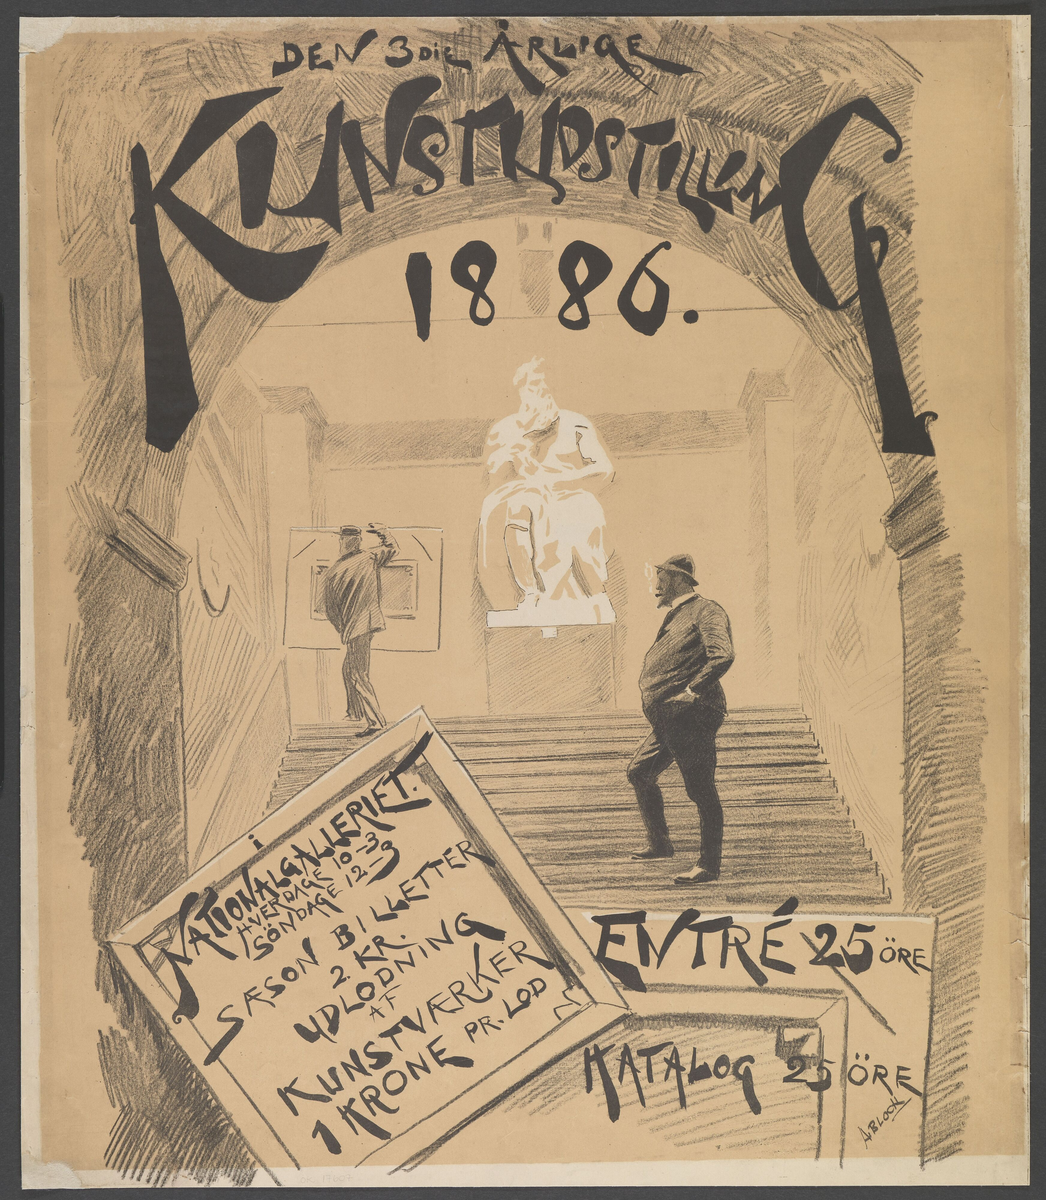 DEN 3DIE ÅRLIGE
KUNSTUDSTILLING
1886.
i
NATIONALGALLERIET.
HVERDAGE 10-3
SÖNDAGE 12-3
SÆSON BILLETTER
2 KR.
UDLODNING
AF
KUNSTVÆRKER
1 KRONE PR. LOD
ENTRÉ 25 ÖRE
KATALOG 25 ÖRE
A BLOCH